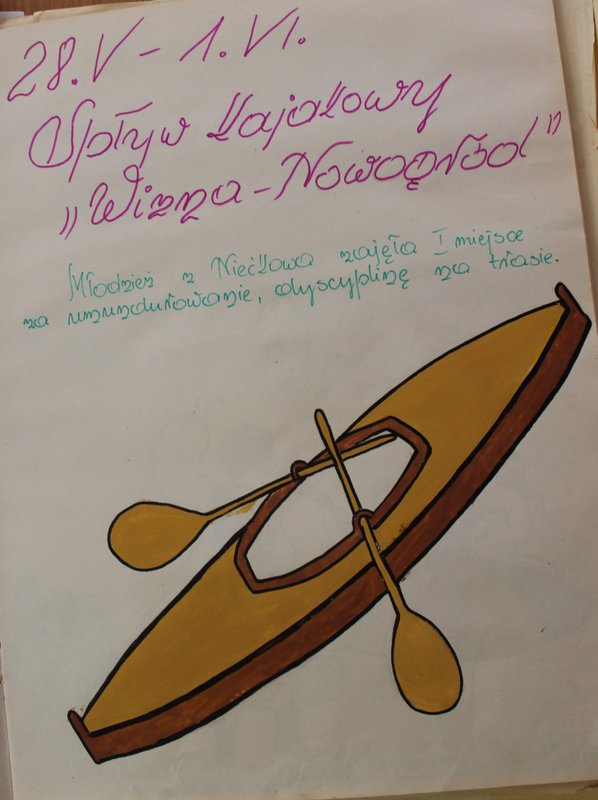 28.V - 1.VI.
Spływ kajakowy
„Wizna - Nowogród"
Młodzież z Niećkowa zajęła I miejsce
za umundurowanie, dyscyplinę na trasie.